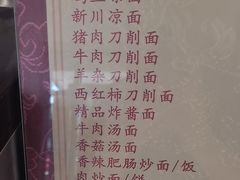 新川凉面
猪肉刀削面
牛肉刀削面
羊杂刀削面
西红柿刀削面
精品炸酱面
牛肉汤面
香菇汤面
香辣肥肠炒面/饭
肉炒面/饼